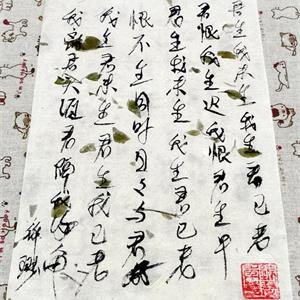 君生我未生我生君已老
君恨我生迟我恨君生早
君生我未生我生君已老
恨不生同时日日与君好
我生君未生君生我已老
我离君天涯君隔我海角